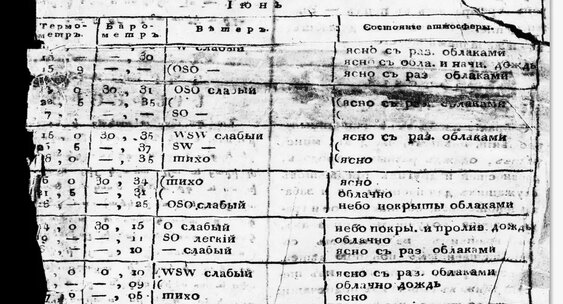 Іюнь
Термо- Баро- Вѣтеръ. Состояніе атмосферы.
метръ. метръ.
— , 30 W слабый ясно съ раз. облаками
15 , — , — (OSO — ясно съ обла. и начи. дождь
— , — ясно съ раз облаками
0 30 , 31 OSO слабый
5 — , 35 ( (ясно съ раз. облаками
7 , — — , — SO — (
16 , 0 30 , 35 WSW слабый ясно съ раз. облаками
, 5 — , 37 SW — (
8 , 0 — , 35 тихо (ясно
6 , 0 30 , 34 (тихо ясно
5 — , 31 ( облачно
— , 25 (OSO слабый небо покрыты облаками
, 0 30 , 15 O слабый небо покры. и пролив. дождь
— , 11 SO легкій облачно
, — — , 10 — слабый ясно съ раз облаками
, 0 0 , 10 (WSW слабый ясно съ раз. облаками
— , 09 ( облачно дождь
7 , 0 — , 06 тихо ясно